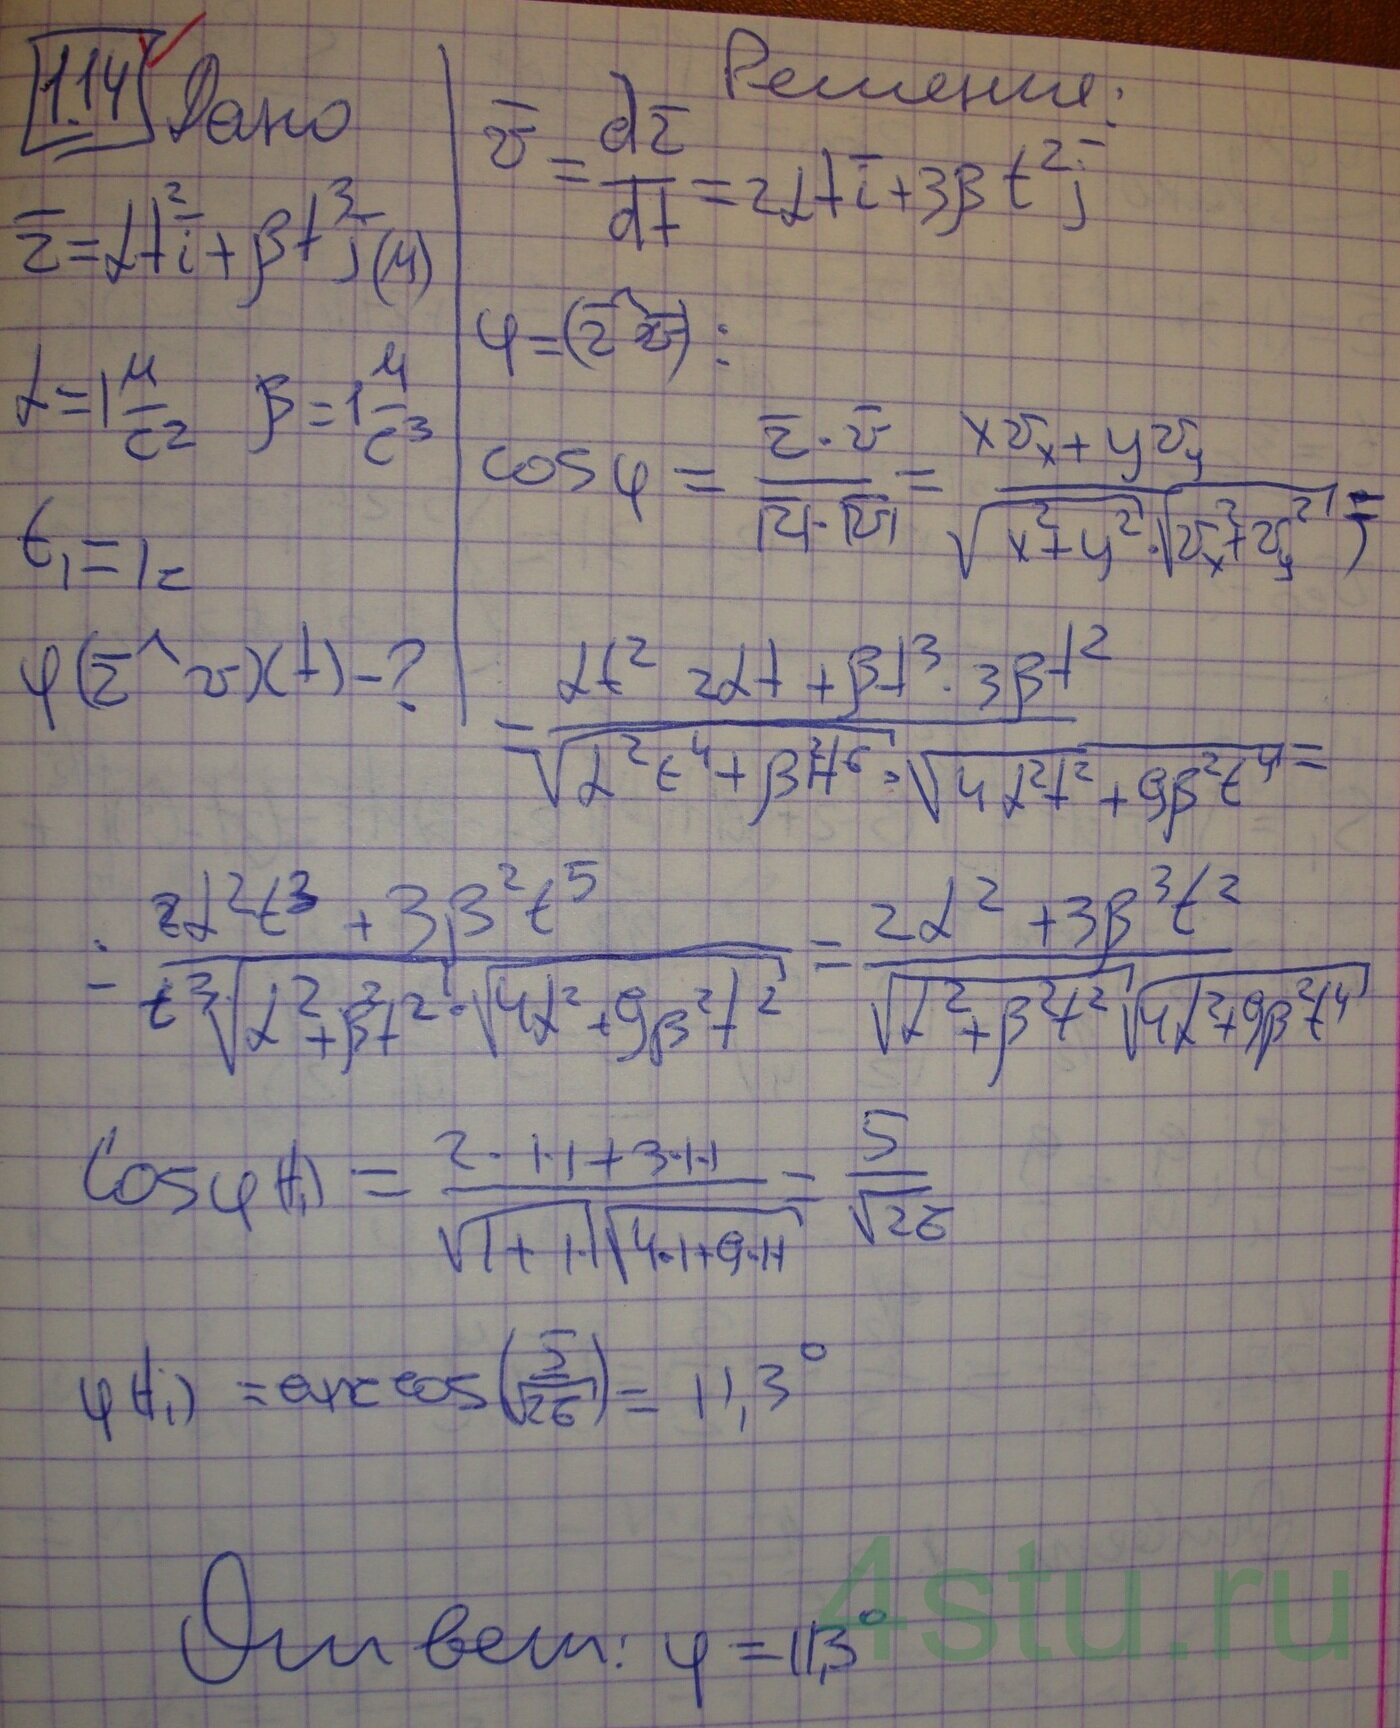 1.14 Дано
r̅ = αt²i̅ + βt³j̅ (м)
α = 1 м/с² β = 1 м/с³
t₁ = 1с
φ(r̅ ^ v)(t) - ?
Решение:
v̅ = dr̅/dt = 2αt i̅ + 3βt² j̅
φ = (r̅ ^ v̅) :
cos φ = r̅·v̅ / |r̅|·|v̅| = xvₓ + yv_y / √(x² + y²)·√(vₓ² + v_y²) =
= αt² 2αt + βt³·3βt² / √(α²t⁴ + β²t⁶)·√(4α²t² + 9β²t⁴) =
= 2α²t³ + 3β²t⁵ / t³√(α² + β²t²)·√(4α² + 9β²t²) = 2α² + 3β³t² / √(α² + β²t²)√(4α² + 9β²t⁴)
Cos φ(t₁) = 2·1·1 + 3·1·1 / √(1 + 1·1)√(4·1 + 9·1) = 5/√26
φ(t₁) = arccos(5/√26) = 11,3°
Ответ: φ = 11,3°
4stu.ru